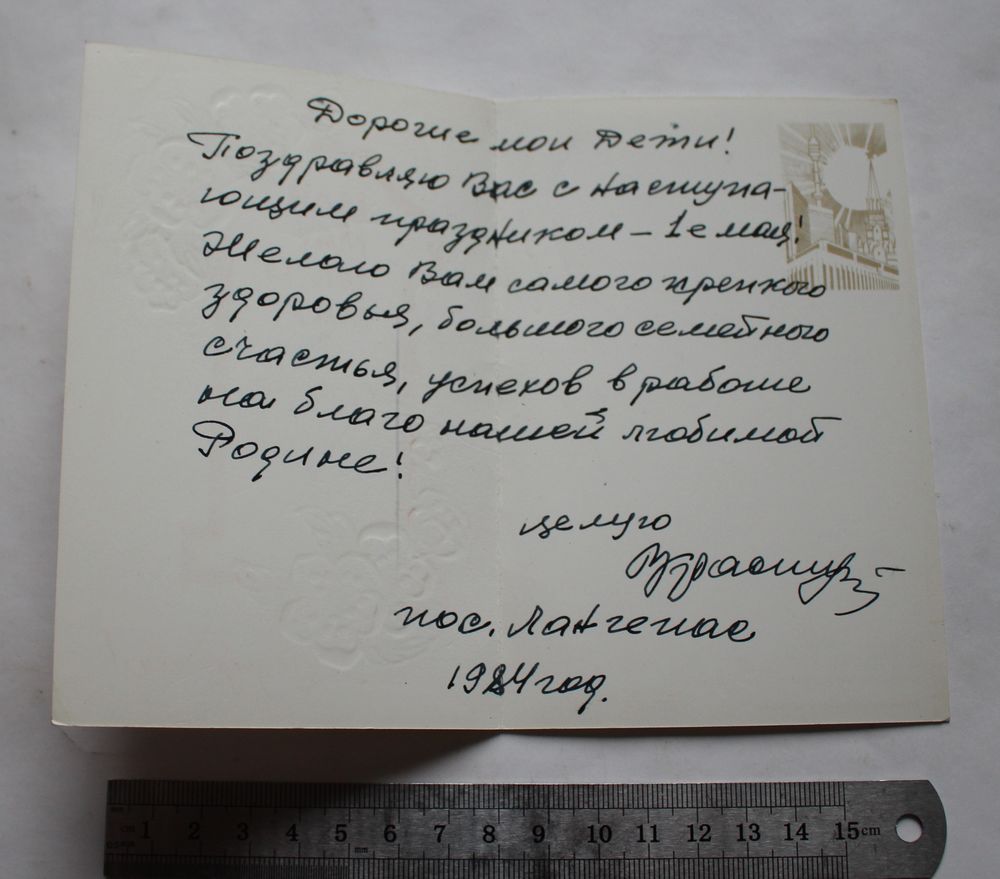 Дорогие мои Дети!
Поздравляю Вас с наступа-
ющим праздником – 1е мая!
Желаю Вам самого крепкого
здоровья, большого семейного
счастья, успехов в работе
на благо нашей любимой
Родине!
целую
пос. Лангепас
1984 год.
cm 1 2 3 4 5 6 7 8 9 10 11 12 13 14 15cm
mm